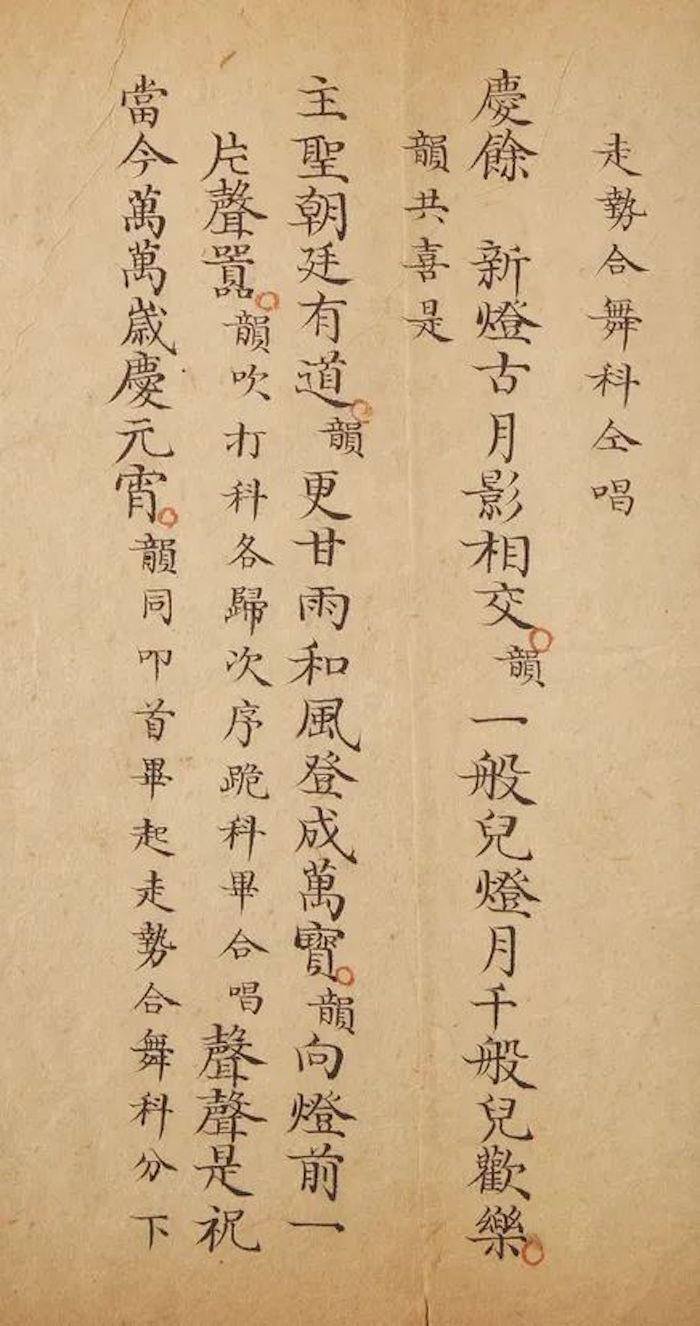 走勢合舞科仝唱
慶餘　新燈古月影相交韻一般兒燈月千般兒歡樂
韻共喜是
主聖朝廷有道韻更甘雨和風登成萬寳韻向燈前一
片聲嚣韻吹打科各歸次序跪科畢合唱聲聲是祝
當今萬萬歲慶元宵韻同叩首畢起走勢合舞科分下